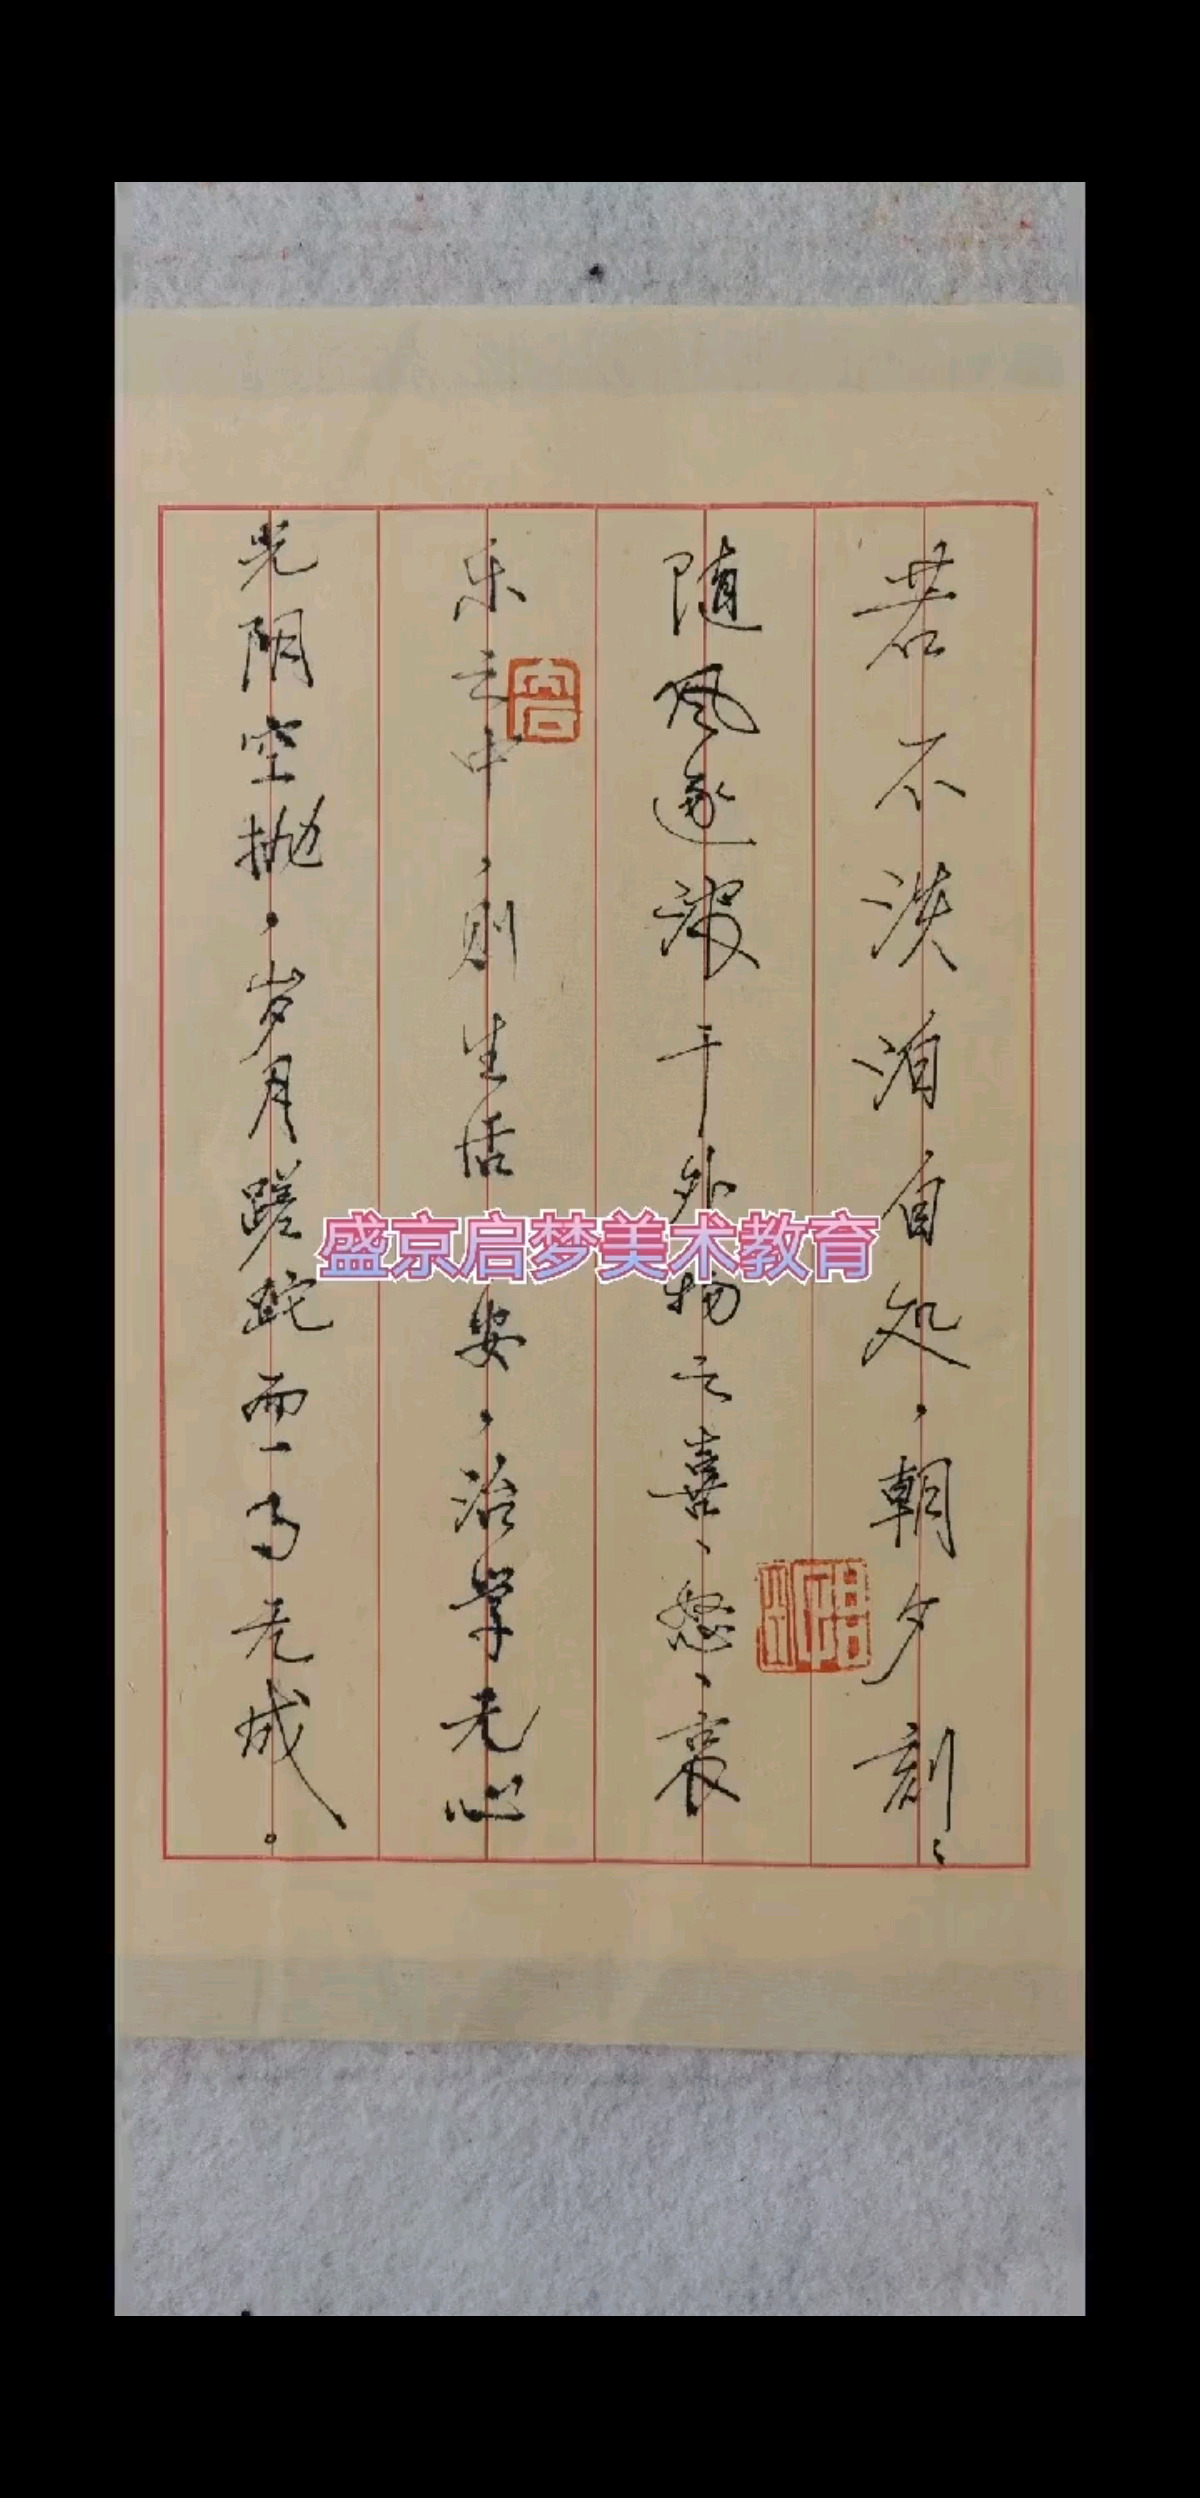 若不淡泊自处，朝夕刻〻
随风逐波于外物之喜、怒、哀
乐之中，则生活安，治学无心
光阴空抛，岁月蹉跎而一事无成。
盛京启梦美术教育